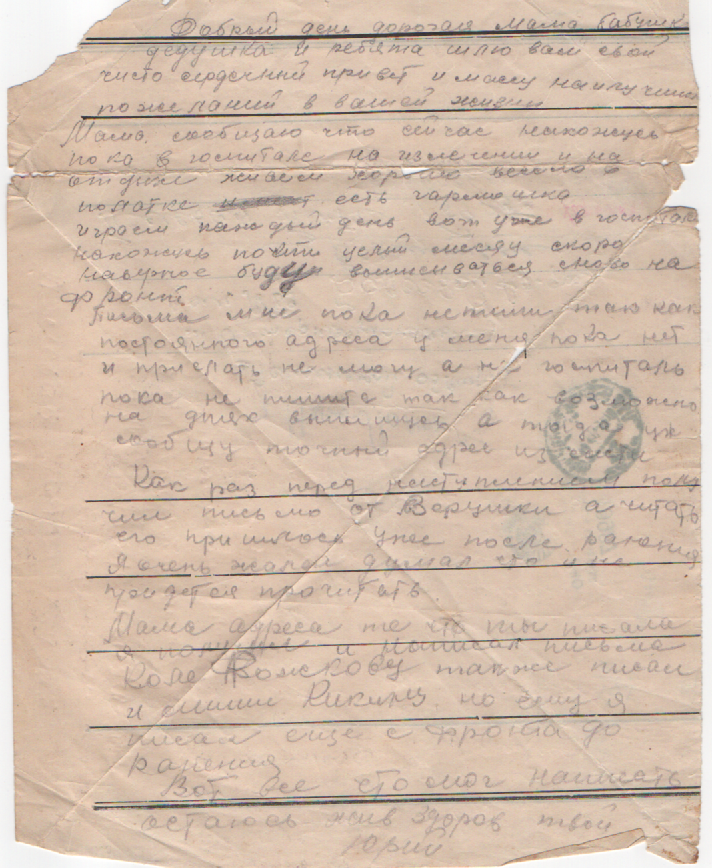 Добрый день дорогая Мама бабушк
дедушка и ребята шлю вам свой
чисто сердечный привет и массу наилучши
пожеланий в вашей жизни
Мама. сообщаю что сейчас нахожусь
пока в госпитале на излечении и на
отдыхе живем хорошо весело в
полатке есть гармошка
играем каждый день вот уже в госпитале
нахожусь почти целый месяц скоро
наверное буду выписываться снова на
фронт
Письма мне пока не пиши таю как
постоянного адреса у меня пока нет
и прислать не могу а на госпиталь
пока не пишите так как возможно
на днях выпишусь а тогда уж
сообщу точный адрес из части
Как раз перед наступлением полу
чил письмо от Верушки а читать
его пришлось уже после ранения
Я очень жалел думал что и не
придется прочитать.
Мама адреса те что ты писала
я получил и написал письма
Коле Рожкову также писал
и Мише Кикину но ему я
писал еще с фронта до
ранения
Вот все что мог написать
остаюсь жив здоров твой
Юрий